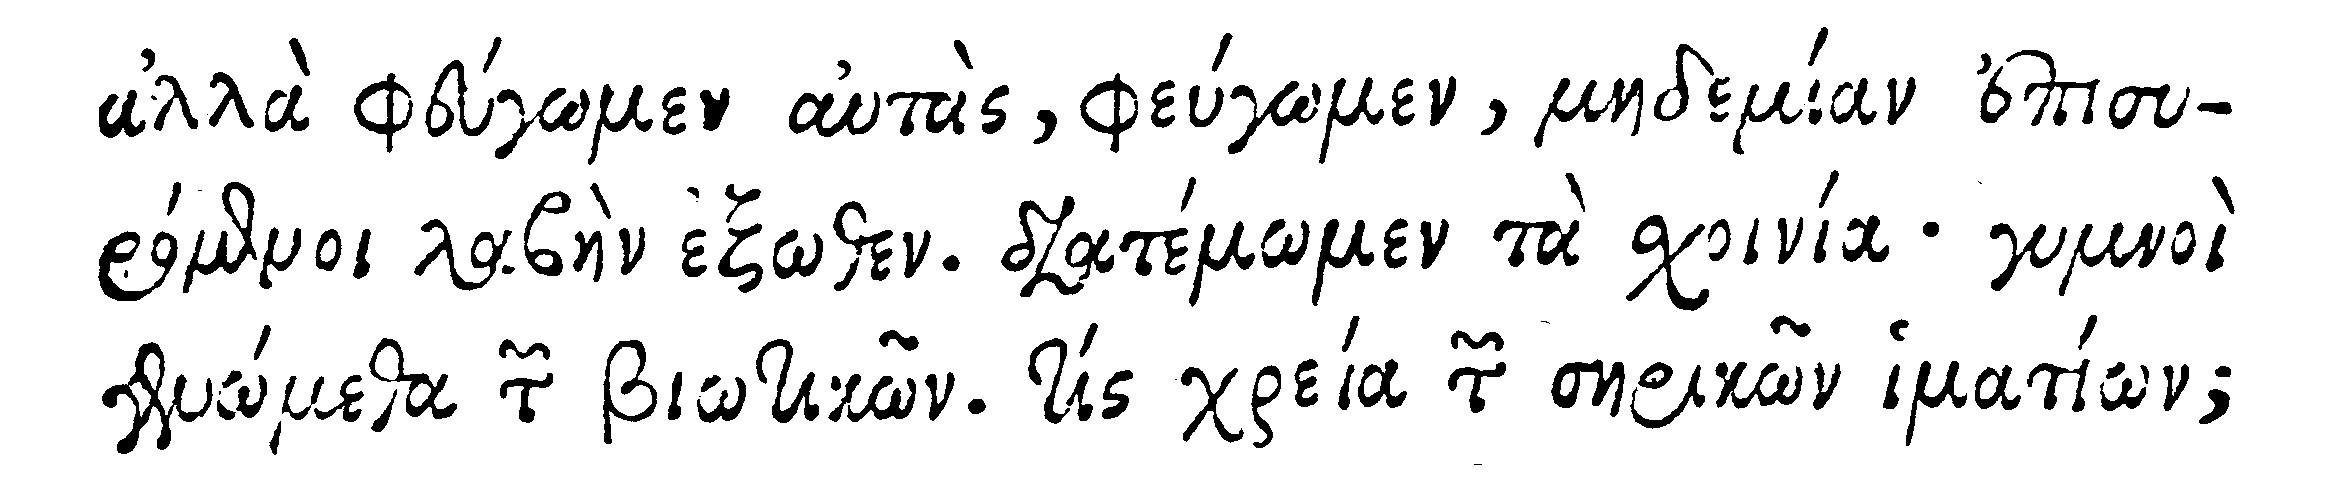 ἀλλὰ φεύγωμεν αὐτὰς, φεύγωμεν, μηδεμίαν ἐπισυ-
ρόμενοι λαβὴν ἐξωθεν. διατέμωμεν τὰ χοινία· γυμνοὶ
γενώμεθα τῶν βιωτικῶν. τίς χρεία τῶν σηρικῶν ἱματίων;